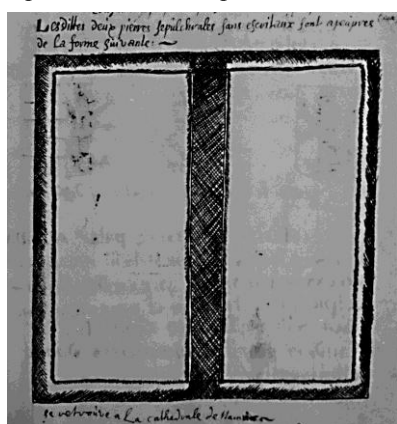 Lesdittes deux pierres sepulchrales sans escritaux sont apeupres
de la forme suivante:
a La cathedrale de